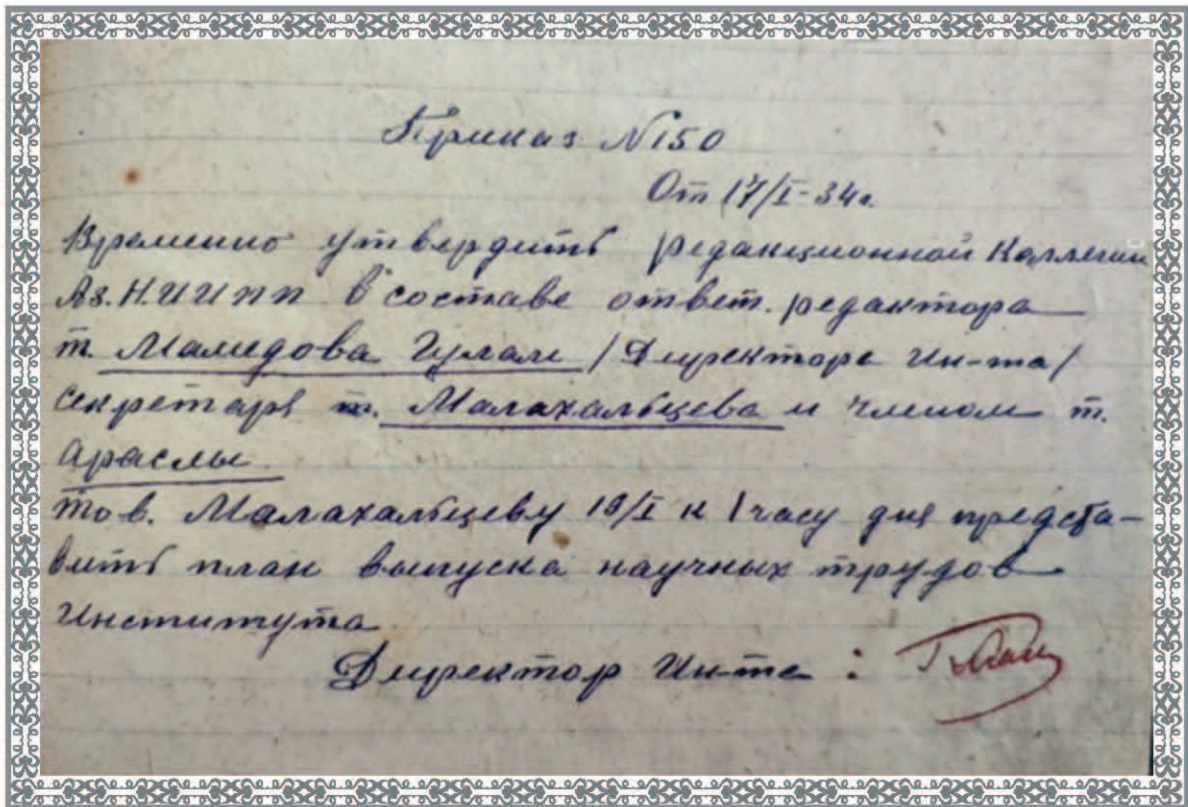 Приказ №150
От 17/I-34г.
Временно утвердить редакционной Коллегии
Аз.Н.ИИПП в составе ответ. редактора
т. Мамедова Гулам /Директора Ин-та/
Секретаря т. Малахальцева и членом т.
Араслы.
тов. Малахальцеву 19/I к 1 часу дня предста-
вить план выпуска научных трудов
Института
Директор Ин-та :